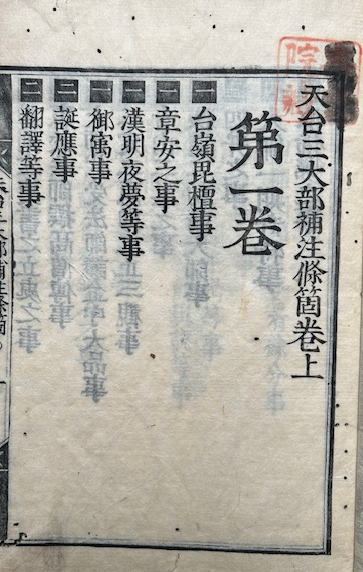 天台三大部補注條箇卷上
第一卷
一 台嶺毘壇事
一 章安之事
一 漢明夜夢等事
一 御寓事
二 誕應事
二 翻譯等事
台三大部補注條箇
院